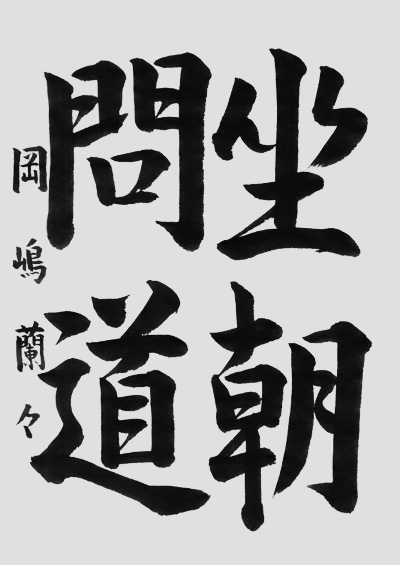 坐朝
問道
岡嶋蘭々